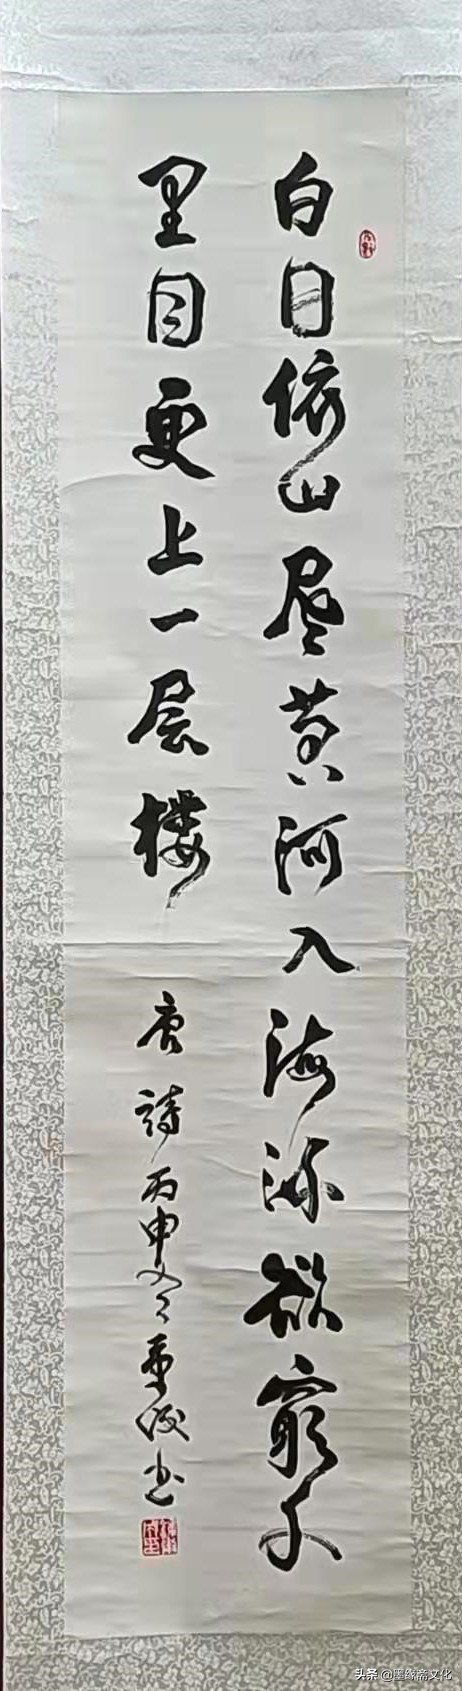 白日依山尽黄河入海流欲窮千
里目更上一层楼
唐詩丙申冬书
头条 @墨缘斋文化